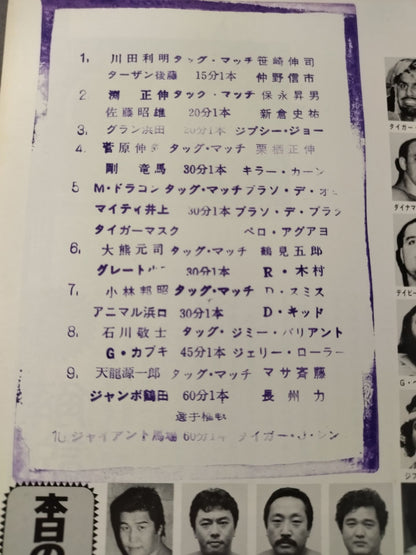 1, 川田利明 タッグ・マッチ 笹崎伸司
ターザン後藤 15分1本 仲野信市
2 渕 正伸 タック・マッチ 保永昇男
佐藤昭雄 20分1本 新倉史祐
3, グラン浜田 20分1本 ジプシー・ジョー
4, 菅原伸 タッグ・マッチ 栗栖正伸
剛 竜馬 30分1本 キラー・カーン
5 M・ドラコン タッグ・マッチ ブラソ・デ・オ
マイティ井上 30分1本 ブラソ・デ・プラ
タイガーマスク ペロ・アグアヨ
6, 大熊元司 タッグ・マッチ 鶴見五郎
グレート 30分1本 R・木村
7, 小林邦昭 タッグ・マッチ D・スミス
アニマル浜口 30分1本 D・キッド
8, 石川敬士 タッグ・ジミー・バリアント
G・カブキ 45分1本 ジェリー・ローラー
9, 天龍源一郎 タッグ・マッチ マサ斉藤
ジャンボ鶴田 60分1本 長州 力
選手権
10 ジャイアント馬場 60分1本 タイガー・J・シン
タイガー・
ダイナマ
デイビー
ジプ
本日の